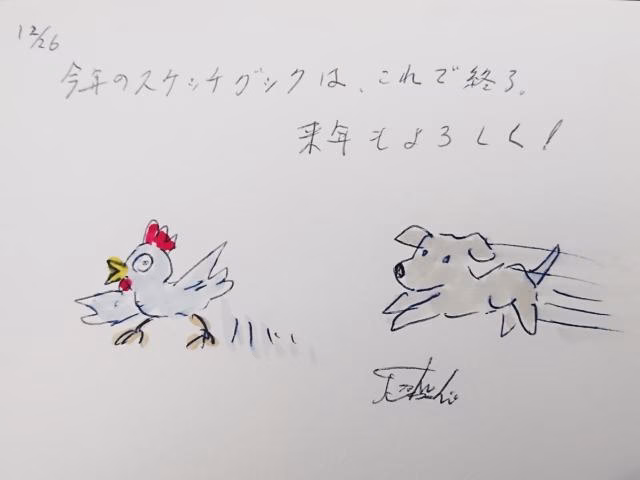 12/26
今年のスケッチブックは、これで終る。
来年もよろしく!